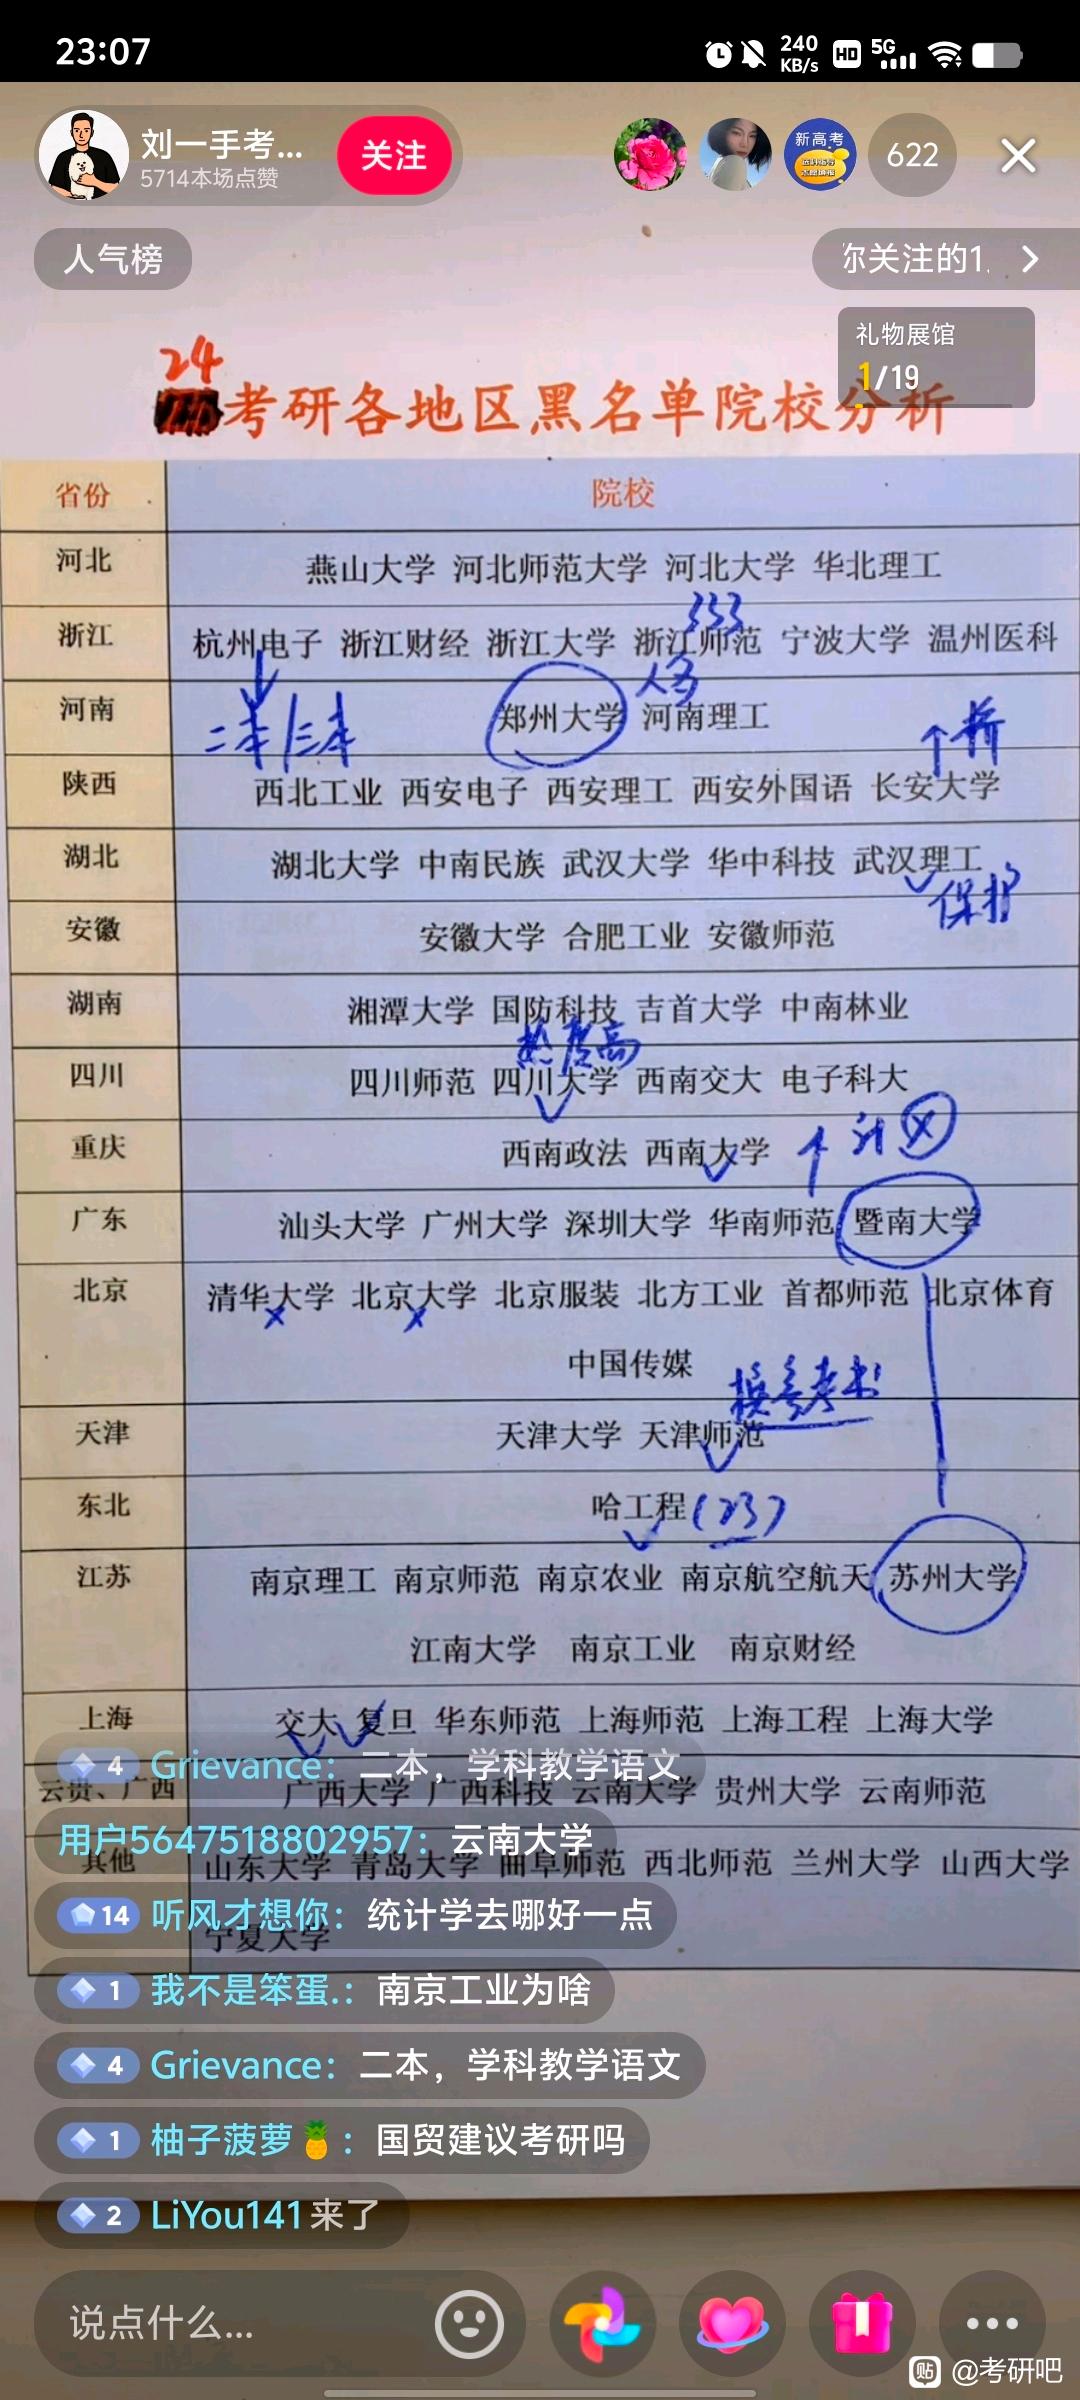 23:07
240 KB/s HD 5G
刘一手考...
5714本场点赞
关注
新高考
622
人气榜
你关注的1
礼物展馆
1/19
24
考研各地区黑名单院校分析
省份 院校
河北 燕山大学 河北师范大学 河北大学 华北理工
333
浙江 杭州电子 浙江财经 浙江大学 浙江师范 宁波大学 温州医科
人多
河南 郑州大学 河南理工
二本/三本
个 新
陕西 西北工业 西安电子 西安理工 西安外国语 长安大学
湖北 湖北大学 中南民族 武汉大学 华中科技 武汉理工
保护
安徽 安徽大学 合肥工业 安徽师范
湖南 湘潭大学 国防科技 吉首大学 中南林业
热度高
四川 四川师范 四川大学 西南交大 电子科大
重庆 西南政法 西南大学
广东 汕头大学 广州大学 深圳大学 华南师范 暨南大学
北京 清华大学 北京大学 北京服装 北方工业 首都师范 北京体育
中国传媒
换参考书
天津 天津大学 天津师范
东北 哈工程 (23)
江苏 南京理工 南京师范 南京农业 南京航空航天 苏州大学
江南大学 南京工业 南京财经
上海 交大 复旦 华东师范 上海师范 上海工程 上海大学
4 Grievance：二本，学科教学语文
云贵、广西 广西大学 广西科技 云南大学 贵州大学 云南师范
用户5647518802957：云南大学
其他 山东大学 青岛大学 曲阜师范 西北师范 兰州大学 山西大学
14 听风才想你：统计学去哪好一点
宁夏大学
1 我不是笨蛋.：南京工业为啥
4 Grievance：二本，学科教学语文
1 柚子菠萝🍍：国贸建议考研吗
2 LiYou141 来了
说点什么...
贴 @考研吧